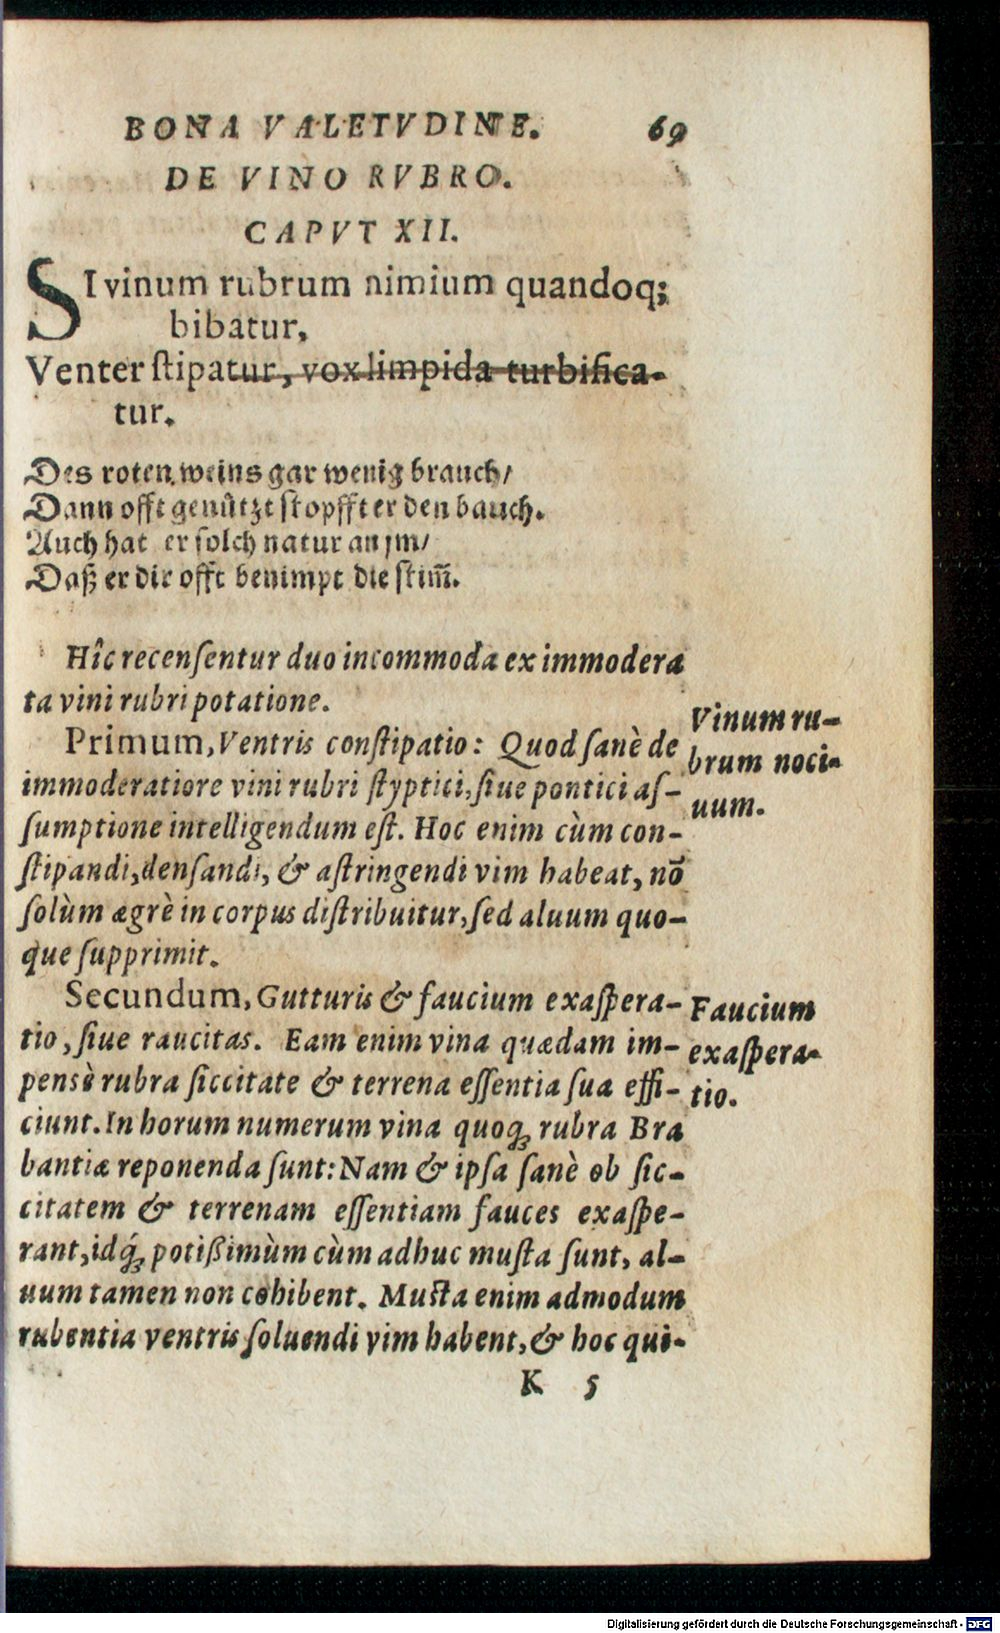 BONA VALETVDINE. 69
DE VINO RVBRO.
CAPVT XII.
SI vinum rubrum nimium quandoq;
bibatur,
Venter ſtipatur, vox limpida turbifica-
tur.
Des roten weins gar wenig brauch/
Dann offt genützt ſtopfft er den bauch.
Auch hat er ſolch natur an jm/
Daß er dir offt benimpt die ſtim̃.
Hîc recenſentur duo incommoda ex immodera
ta vini rubri potatione.
Primum, Ventris conſtipatio: Quod ſanè de
immoderatiore vini rubri ſtyptici, ſiue pontici aſ-
ſumptione intelligendum eſt. Hoc enim cùm con-
ſtipandi, denſandi, & aſtringendi vim habeat, nō
ſolùm ægrè in corpus diſtribuitur, ſed aluum quo-
que ſupprimit.
Vinum ru-
brum noci-
uum.
Secundum, Gutturis & faucium exaſpera-
tio, ſiue raucitas. Eam enim vina quædam im-
pensè rubra ſiccitate & terrena eſſentia ſua effi-
ciunt. In horum numerum vina quoq; rubra Bra
bantiæ reponenda ſunt: Nam & ipſa ſanè ob ſic-
citatem & terrenam eſſentiam fauces exaſpe-
rant, idq́; potißimùm cùm adhuc muſta ſunt, al-
uum tamen non cohibent. Muſta enim admodum
rubentia ventris ſoluendi vim habent, & hoc qui-
Faucium
exaſpera-
tio.
K 5
Digitalisierung gefördert durch die Deutsche Forschungsgemeinschaft - DFG